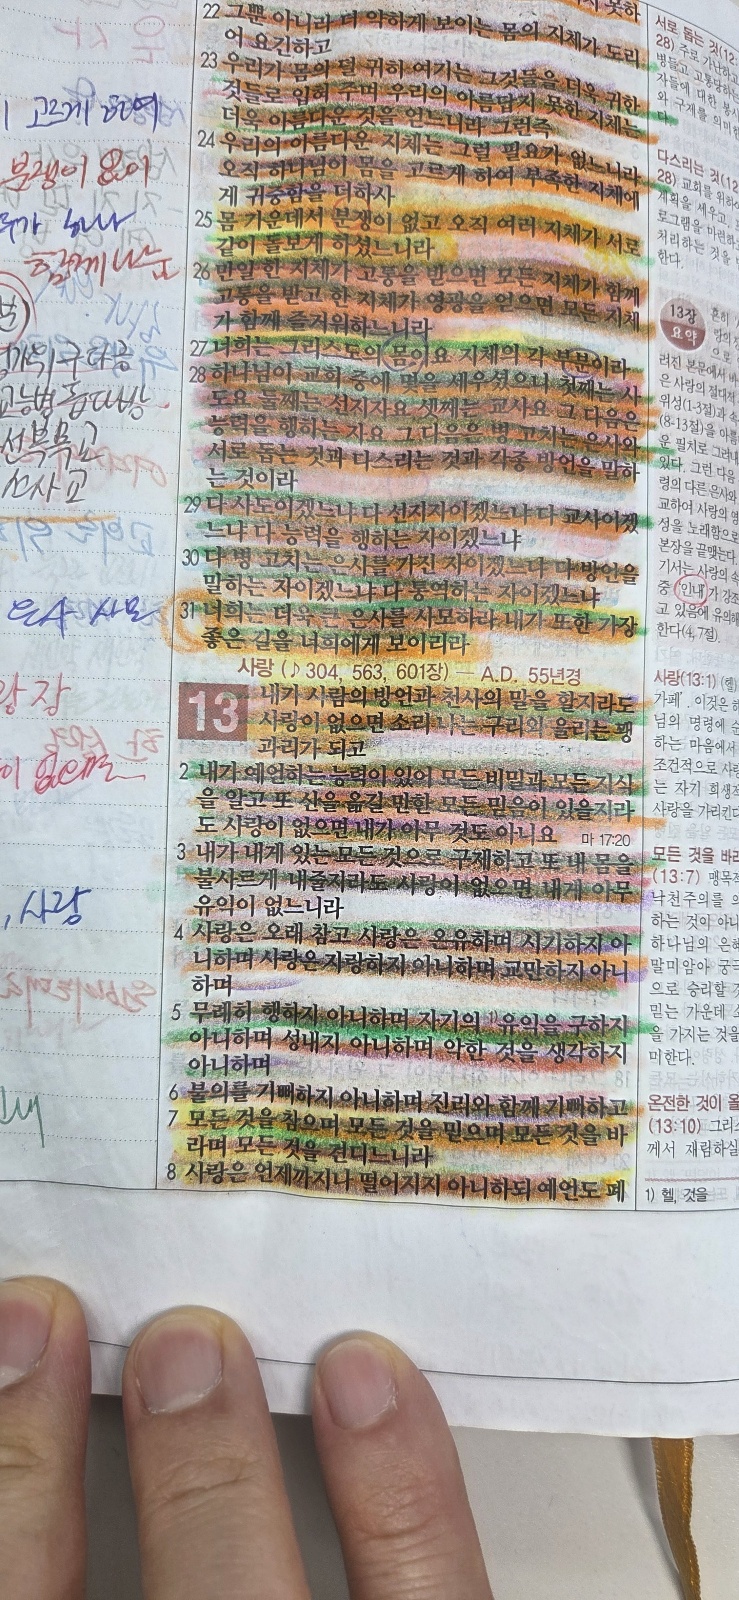 22 그뿐 아니라 더 약하게 보이는 몸의 지체가 도리
어 요긴하고
23 우리가 몸의 덜 귀히 여기는 그것들을 더욱 귀한
것들로 입혀 주며 우리의 아름답지 못한 지체는
더욱 아름다운 것을 얻느니라 그런즉
24 우리의 아름다운 지체는 그럴 필요가 없느니라
오직 하나님이 몸을 고르게 하여 부족한 지체에
게 귀중함을 더하사
25 몸 가운데서 분쟁이 없고 오직 여러 지체가 서로
같이 돌보게 하셨느니라
26 만일 한 지체가 고통을 받으면 모든 지체가 함께
고통을 받고 한 지체가 영광을 얻으면 모든 지체
가 함께 즐거워하느니라
27 너희는 그리스도의 몸이요 지체의 각 부분이라
28 하나님이 교회 중에 몇을 세우셨으니 첫째는 사
도요 둘째는 선지자요 셋째는 교사요 그 다음은
능력을 행하는 자요 그 다음은 병 고치는 은사와
서로 돕는 것과 다스리는 것과 각종 방언을 말하
는 것이라
29 다 사도이겠느냐 다 선지자이겠느냐 다 교사이겠
느냐 다 능력을 행하는 자이겠느냐
30 다 병 고치는 은사를 가진 자이겠느냐 다 방언을
말하는 자이겠느냐 다 통역하는 자이겠느냐
31 너희는 더욱 큰 은사를 사모하라 내가 또한 가장
좋은 길을 너희에게 보이리라
사랑 (♪ 304, 563, 601장) — A.D. 55년경
13 내가 사람의 방언과 천사의 말을 할지라도
사랑이 없으면 소리 나는 구리와 울리는 꽹
과리가 되고
2 내가 예언하는 능력이 있어 모든 비밀과 모든 지식
을 알고 또 산을 옮길 만한 모든 믿음이 있을지라
도 사랑이 없으면 내가 아무 것도 아니요 마 17:20
3 내가 내게 있는 모든 것으로 구제하고 또 내 몸을
불사르게 내줄지라도 사랑이 없으면 내게 아무
유익이 없느니라
4 사랑은 오래 참고 사랑은 온유하며 시기하지 아
니하며 사랑은 자랑하지 아니하며 교만하지 아니
하며
5 무례히 행하지 아니하며 자기의 1)유익을 구하지
아니하며 성내지 아니하며 악한 것을 생각하지
아니하며
6 불의를 기뻐하지 아니하며 진리와 함께 기뻐하고
7 모든 것을 참으며 모든 것을 믿으며 모든 것을 바
라며 모든 것을 견디느니라
8 사랑은 언제까지나 떨어지지 아니하되 예언도 폐
고르게 하여
분쟁이 없이
함께 나눔
선복목교
선사교
은사 사모
이 없으면
, 사랑
서로 돕는 것(12:
28) 주로 가난하고
다스리는 것(12
28) 교회를 위하
계획을 세우고,
로그램을 마련하
처리하는 것을
한다.
13장
요약
려진 본문에서
은 사랑의 절대적
위성(1-3절)과 속
(8-13절)을 아름
운 필치로 그려내
있다. 그런 다음
령의 다른 은사와
교하여 사랑의 영
성을 노래함으로
본장을 끝맺는다.
기서는 사랑의 속
중 인내가 강조
고 있음에 유의해
한다(4, 7절).
사랑(13:1) (헬)
가페'. 이것은 하
님의 명령에 순
하는 마음에서
조건적으로 사랑
는 자기 희생적
사랑을 가리킨다
모든 것을 바라
(13:7) 맹목적
낙천주의를 의
하는 것이 아니
하나님의 은혜
말미암아 궁극
으로 승리할 것
믿는 가운데 소
을 가지는 것을
미한다.
온전한 것이 올
(13:10) 그리스
께서 재림하실
1) 헬, 것을